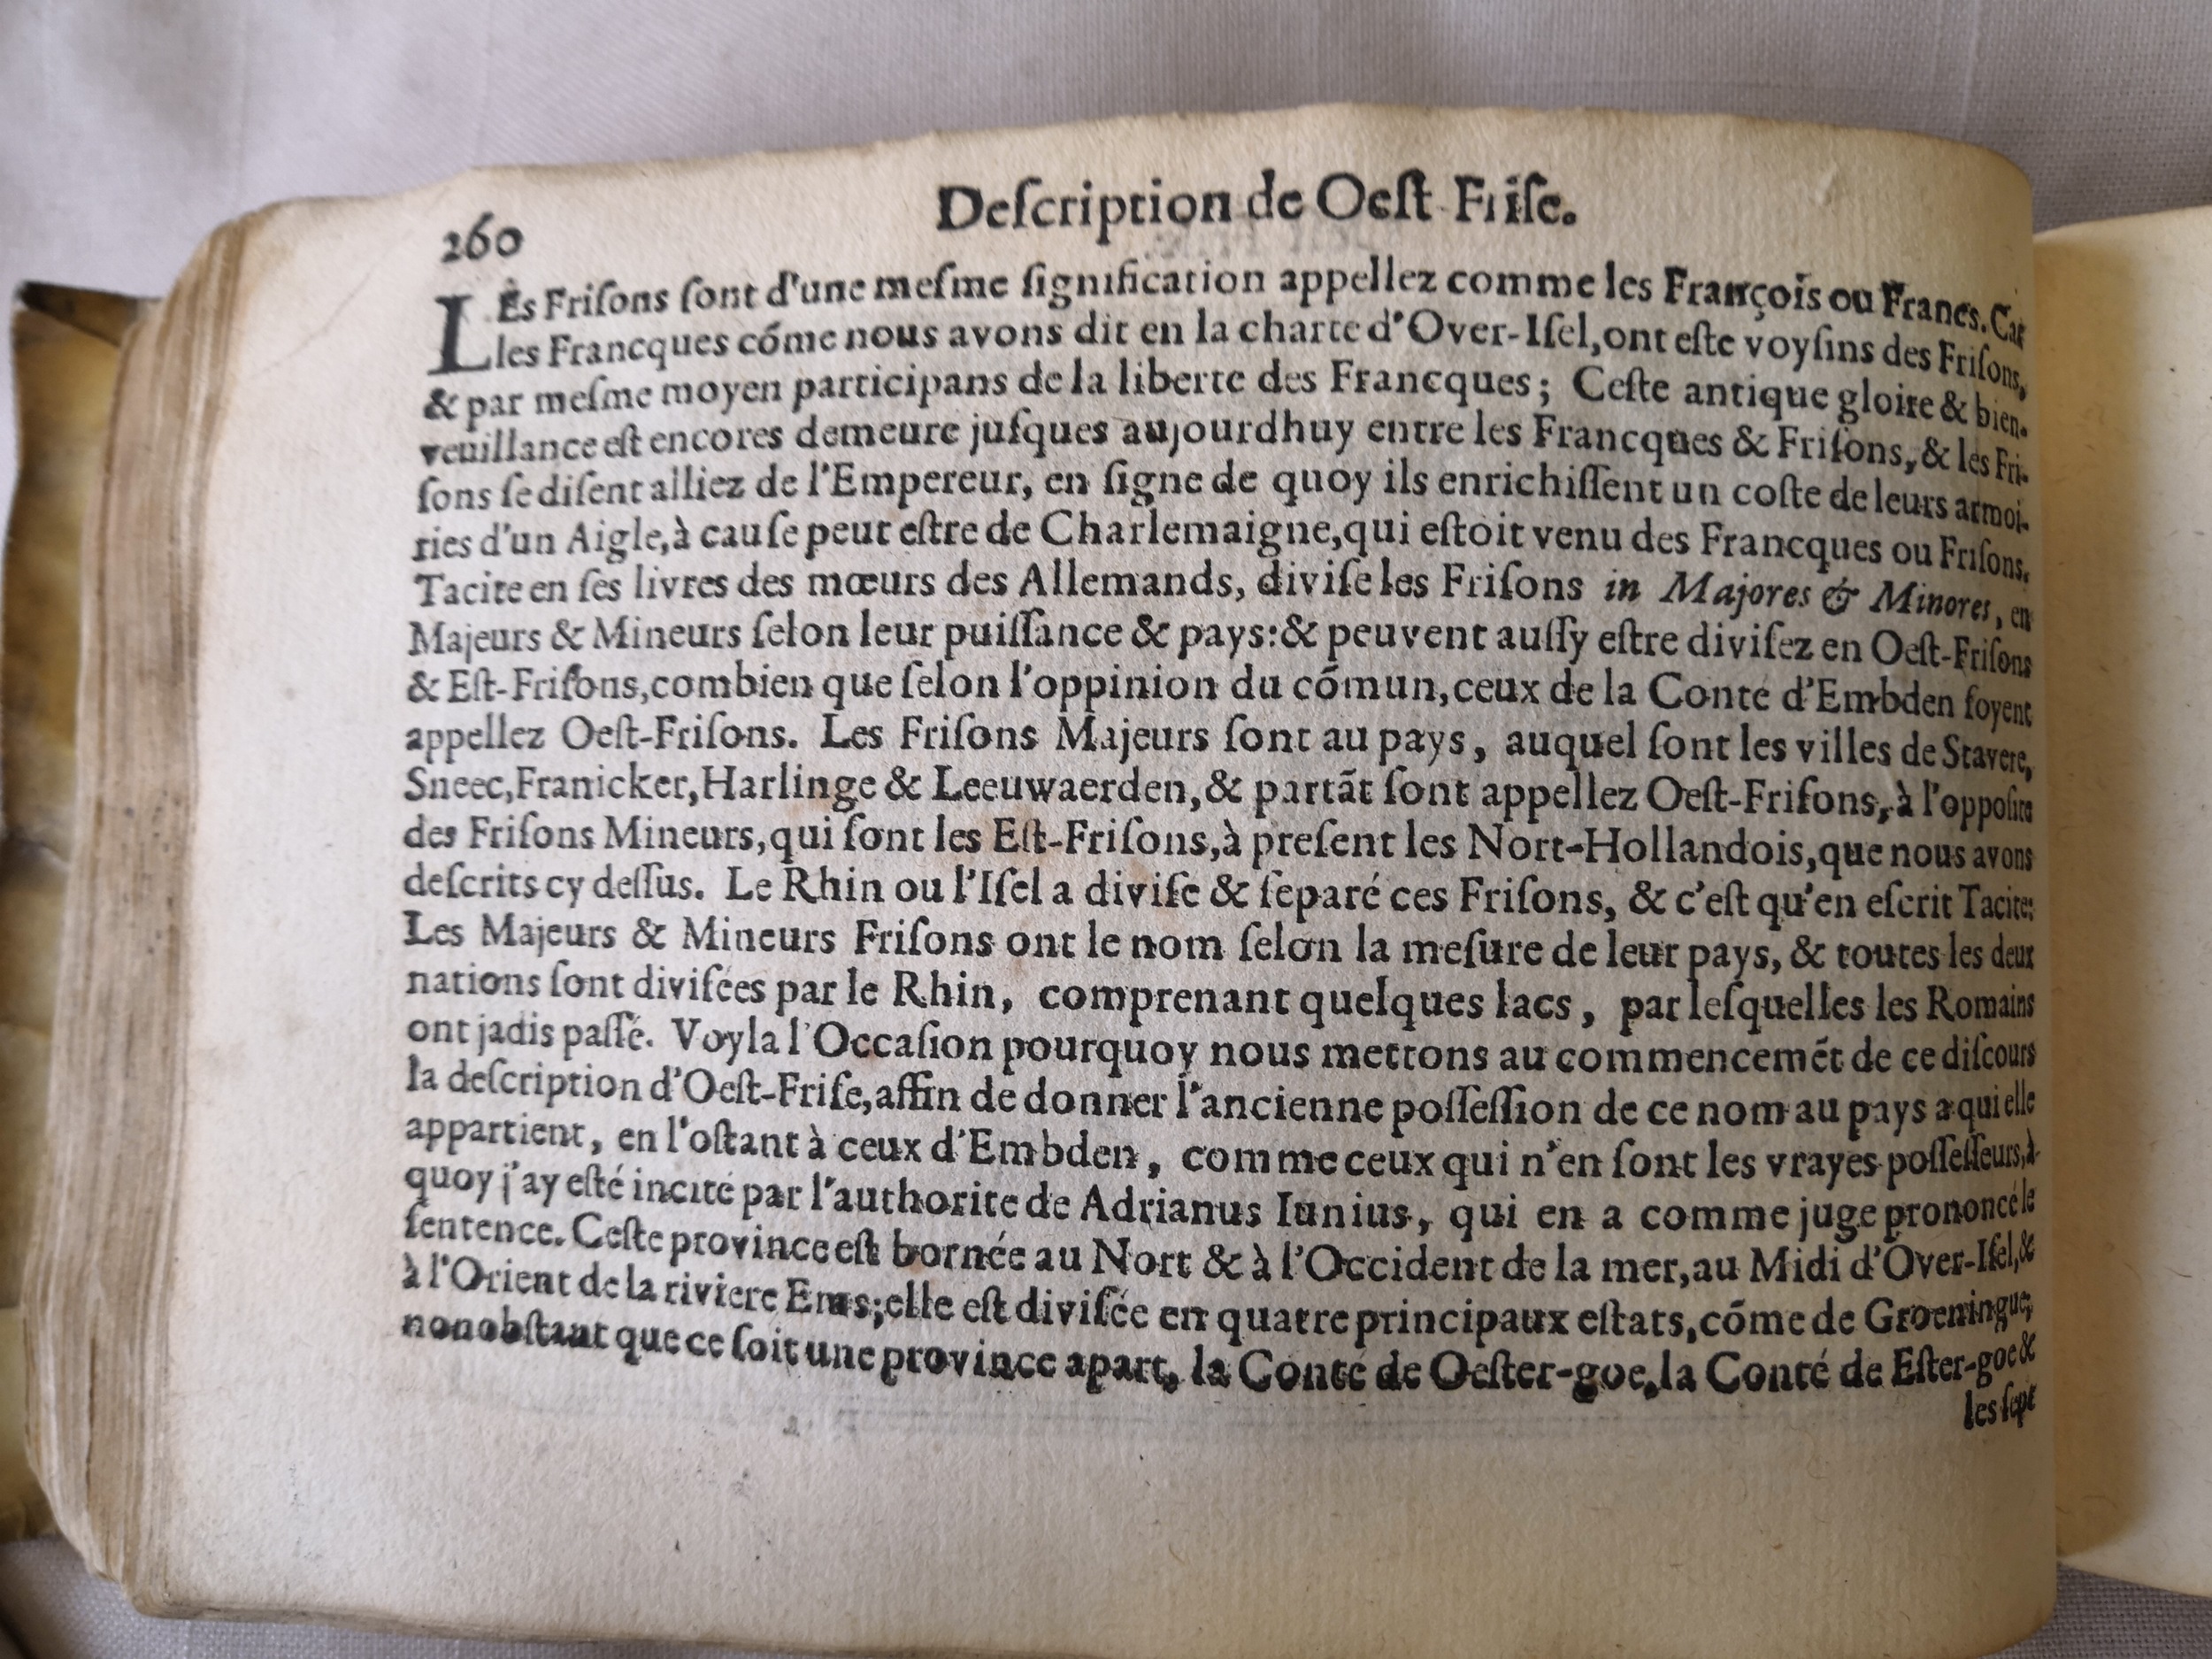 260
Deſcription de Oeſt Friſe.
LEs Friſons ſont d'une meſme ſignification appellez comme les François ou Francs. Car
les Francques cóme nous avons dit en la charte d'Over-Iſel, ont eſte voyſins des Friſons,
& par meſme moyen participans de la liberte des Francques; Ceſte antique gloire & bien-
veuillance eſt encores demeure juſques aujourdhuy entre les Francques & Friſons, & les Fri-
ſons ſe diſent alliez de l'Empereur, en ſigne de quoy ils enrichiſſent un coſte de leurs armoi-
ries d'un Aigle, à cauſe peut eſtre de Charlemaigne, qui eſtoit venu des Francques ou Friſons.
Tacite en ſes livres des mœurs des Allemands, diviſe les Friſons in Majores & Minores, en
Majeurs & Mineurs ſelon leur puiſſance & pays: & peuvent auſſy eſtre diviſez en Oeſt-Friſons
& Eſt-Friſons, combien que ſelon l'oppinion du cómun, ceux de la Conte d'Embden ſoyent
appellez Oeſt-Friſons. Les Friſons Majeurs ſont au pays, auquel ſont les villes de Stavere,
Sneec, Franicker, Harlinge & Leeuwaerden, & partãt ſont appellez Oeſt-Friſons, à l'oppoſite
des Friſons Mineurs, qui ſont les Eſt-Friſons, à preſent les Nort-Hollandois, que nous avons
deſcrits cy deſſus. Le Rhin ou l'Iſel a diviſe & ſeparé ces Friſons, & c'eſt qu'en eſcrit Tacite:
Les Majeurs & Mineurs Friſons ont le nom ſelon la meſure de leur pays, & toutes les deux
nations ſont diviſées par le Rhin, comprenant quelques lacs, par leſquelles les Romains
ont jadis paſſé. Voyla l'Occaſion pourquoy nous mettons au commencemét de ce diſcours
la deſcription d'Oeſt-Friſe, affin de donner l'ancienne poſſeſſion de ce nom au pays a qui elle
appartient, en l'oſtant à ceux d'Embden, comme ceux qui n'en ſont les vrayes poſſeſſeurs, à
quoy j'ay eſté incité par l'authorite de Adrianus Iunius, qui en a comme juge prononcé le
ſentence. Ceſte province eſt bornée au Nort & à l'Occident de la mer, au Midi d'Over-Iſel, &
à l'Orient de la riviere Ems; elle eſt diviſée en quatre principaux eſtats, cõme de Groeningue,
nonobſtant que ce ſoit une province apart, la Conté de Oeſter-goe, la Conté de Eſter-goe &
les ſept